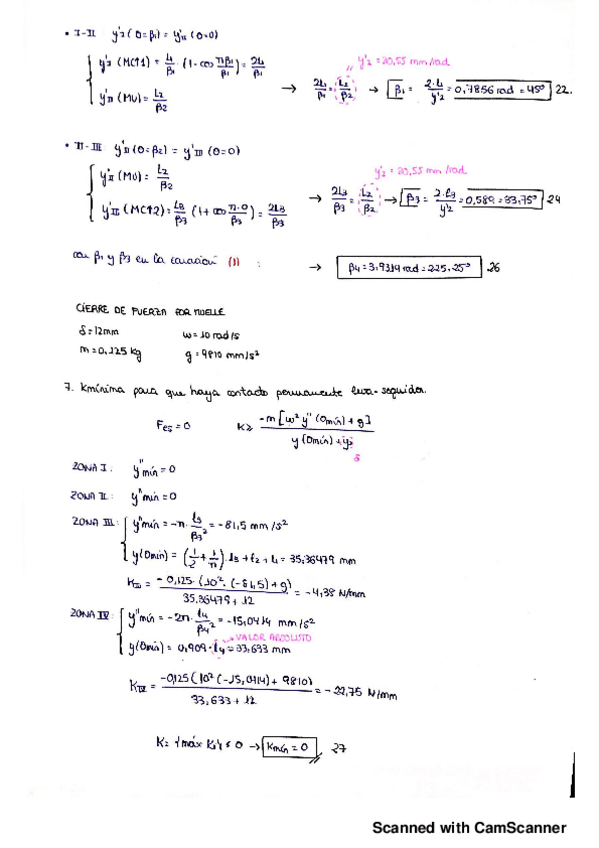 • I-II y'I (θ=β1) = y'II (θ=0)
y'I (MC↑1) = L1/β1 · (1-cos πβ1/β1) = 2L1/β1
y'2 = 20,55 mm/rad.
y'II (MU) = L2/β2
→ 2L1/β1 = L2/β2 → β1 = 2·L1/y'2 = 0,7856 rad = 45° 22.
• II-III y'II (θ=β2) = y'III (θ=0)
y'2 = 20,55 mm/rad.
y'II (MU) = L2/β2
y'III (MC↑2) = L3/β3 (1+cos π·0/β3) = 2L3/β3
→ 2L3/β3 = L2/β2 → β3 = 2·L3/y'2 = 0,589 = 33,75° 24
con β1 y β3 en la ecuación (1) : → β4 = 3,9314 rad = 225,25° 26
CIERRE DE FUERZA POR MUELLE
δ = 12mm w = 10 rad/s
m = 0,125 kg g = 9810 mm/s²
7. Kmínima para que haya contacto permanente leva-seguidor.
Fes = 0 K ≥ -m [w² y'' (θmín) + g] / y(θmín) + yo
δ
ZONA I: y''mín = 0
ZONA II: y''mín = 0
ZONA III: y''mín = -π · L3/β3² = -81,5 mm/s²
y(θmín) = (1/2 + 1/π) · L3 + L2 + L1 = 35,36479 mm
KIII = -0,125 · (10² · (-81,5) + g) / 35,36479 + 12 = -4,38 N/mm
ZONA IV: y''mín = -2π · L4/β4² = -15,0414 mm/s²
→ VALOR ABSOLUTO
y(θmín) = 0,909 · L4 = 33,633 mm
KIV = -0,125 (10² (-15,0414) + 9810) / 33,633 + 12 = -22,75 N/mm
K = {máx Ki} ≤ 0 → Kmín = 0 27
Scanned with CamScanner